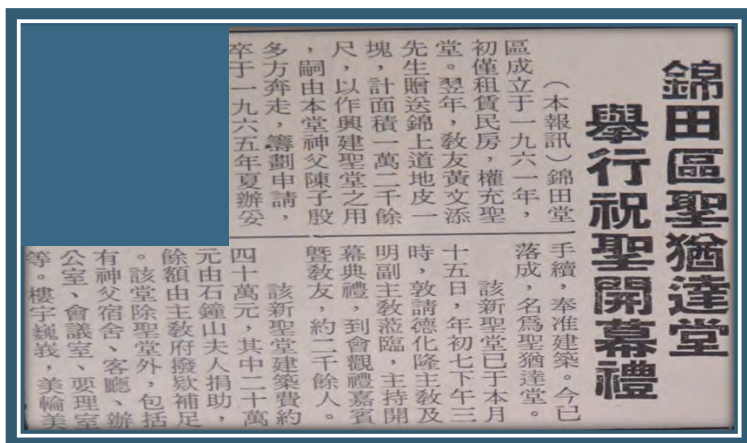 錦田區聖猶達堂
舉行祝聖開幕禮
（本報訊）錦田堂
區成立于一九六一年，
初僅租賃民房，權充聖
堂。翌年，教友黃文添
先生贈送錦上道地皮一
塊，計面積一萬二千餘
尺，以作興建聖堂之用
，嗣由本堂神父陳子殷
多方奔走，籌劃申請，
卒于一九六五年夏辦妥
手續，奉准建築。今已
落成，名爲聖猶達堂。
該新聖堂已于本月
十五日，年初七下午三
時，敦請德化隆主教及
明副主教蒞臨，主持開
幕典禮，到會觀禮嘉賓
暨教友，約二千餘人。
該新聖堂建築費約
四十萬元，其中二十萬
元由石鐘山夫人捐助，
餘額由主教府撥欵補足
。該堂除聖堂外，包括
有神父宿舍、客廳、辦
公室、會議室、要理室
等。樓宇巍峩，美輪美